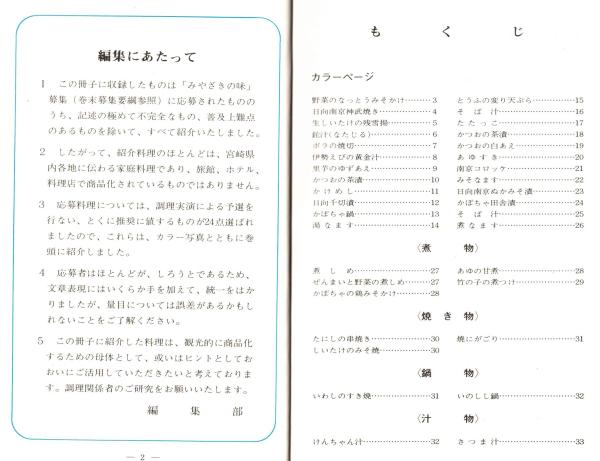 編集にあたって
1 この冊子に収録したものは「みやざきの味」
募集(巻末募集要綱参照)に応募されたものの
うち、記述の極めて不完全なもの、普及上難点
のあるものを除いて、すべて紹介いたしました。
2 したがって、紹介料理のほとんどは、宮崎県
内各地に伝わる家庭料理であり、旅館、ホテル、
料理店で商品化されているものではありません。
3 応募料理については、調理実演による予選を
行ない、とくに推奨に値するものが24点選ばれ
ましたので、これらは、カラー写真とともに巻
頭に紹介しました。
4 応募者はほとんどが、しろうとであるため、
文章表現にはいくらか手を加えて、統一をはか
りましたが、量目については誤差があるかもし
れないことをご了解ください。
5 この冊子に紹介した料理は、観光的に商品化
するための母体として、或いはヒントとしてお
おいにご活用していただきたいと考えておりま
す。調理関係者のご研究をお願いいたします。
編集部
— 2 —
もくじ
カラーページ
野菜のなっとうみそかけ…………3
日向南京神武焼き…………4
生しいたけの残雪揚…………5
鉈汁(なたじる)…………6
ボラの焼切…………7
伊勢えびの黄金汁…………8
里芋のゆずあえ…………9
かつおの茶漬…………10
かけめし…………11
日向千切漬…………12
かぼちゃ鍋…………13
湯なます…………14
とうふの変り天ぷら…………15
そば汁…………16
たたっこ…………17
かつおの茶漬…………18
かつおの白あえ…………19
あゆすき…………20
南京コロッケ…………21
みそなます…………22
日向南京ぬかみそ漬…………23
かぼちゃ田舎漬…………24
そば汁…………25
煮なます…………26
〈煮物〉
煮しめ…………27
ぜんまいと野菜の煮しめ…………27
かぼちゃの鶏みそかけ…………28
あゆの甘煮…………28
竹の子の煮つけ…………29
〈焼き物〉
たにしの串焼き…………30
しいたけのみそ焼…………30
焼にがごり…………31
〈鍋物〉
いわしのすき焼…………31
いのしし鍋…………32
〈汁物〉
けんちゃん汁…………32
さつま汁…………33